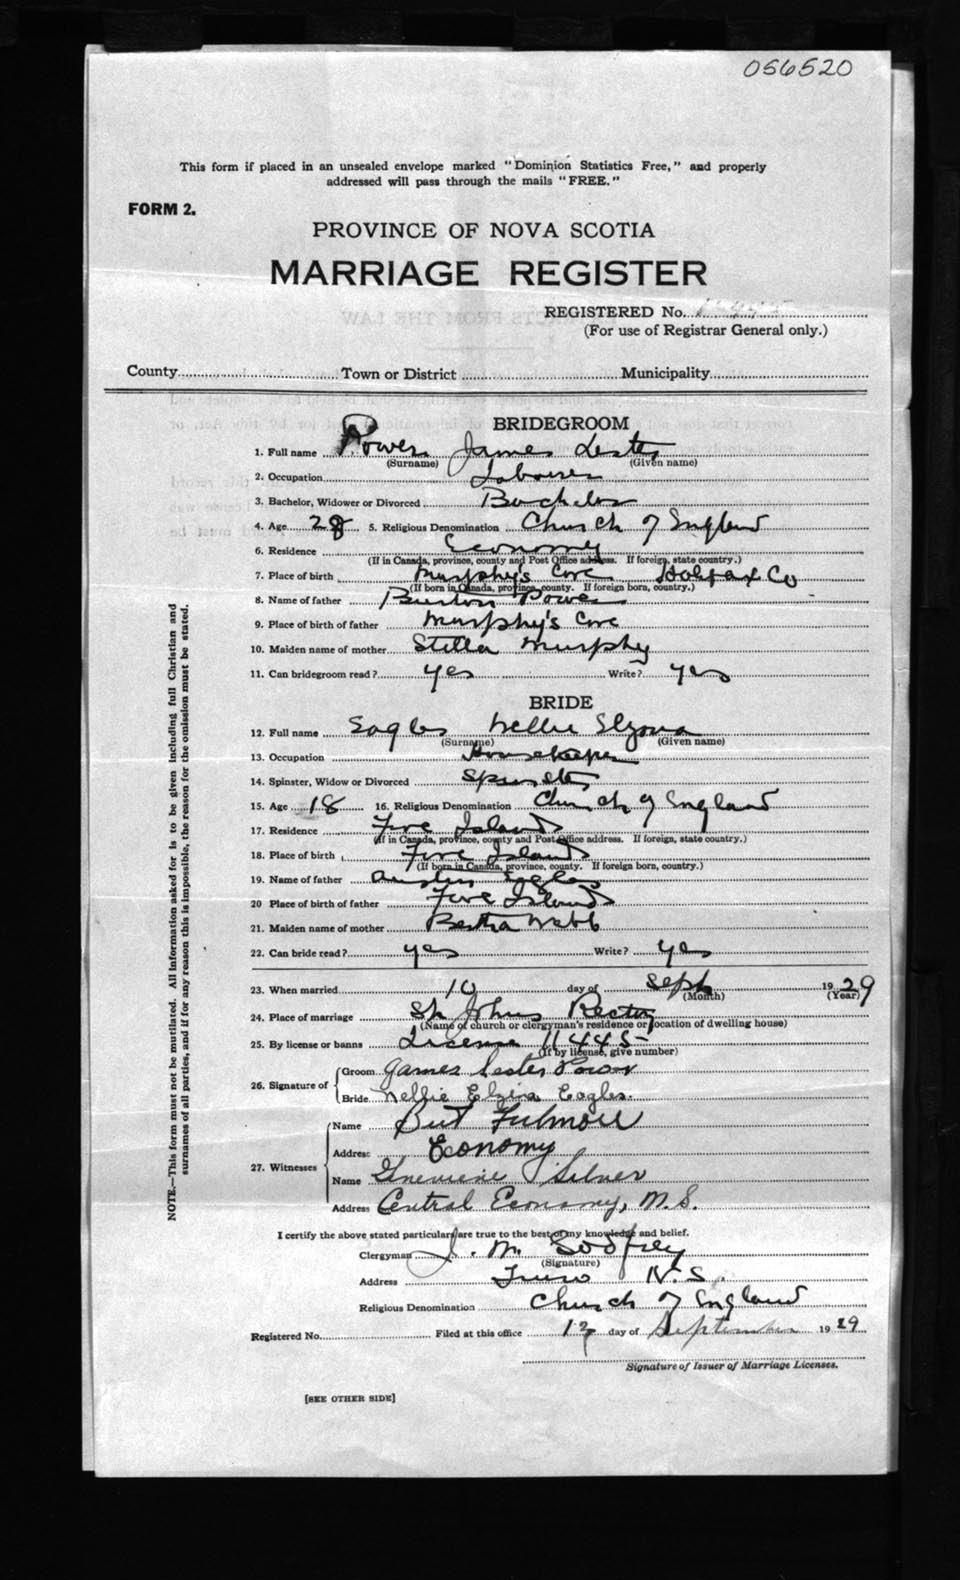 056520
This form if placed in an unsealed envelope marked "Dominion Statistics Free," and properly
addressed will pass through the mails "FREE."
FORM 2.
PROVINCE OF NOVA SCOTIA
MARRIAGE REGISTER
REGISTERED No.
(For use of Registrar General only.)
County Town or District Municipality
BRIDEGROOM
1. Full name Power James Lester
(Surname) (Given name)
2. Occupation Labourer
3. Bachelor, Widower or Divorced Bachelor
4. Age 28 5. Religious Denomination Church of England
6. Residence Economy
(If in Canada, province, county and Post Office address. If foreign, state country.)
7. Place of birth Murphy's Cove Halifax Co
(If born in Canada, province, county. If foreign born, country.)
8. Name of father Burton Power
9. Place of birth of father Murphy's Cove
10. Maiden name of mother Stella Murphy
11. Can bridegroom read? yes Write? yes
BRIDE
12. Full name Eagles Nellie
(Surname) (Given name)
13. Occupation Housekeeper
14. Spinster, Widow or Divorced Spinster
15. Age 18 16. Religious Denomination Church of England
17. Residence Five Islands
(If in Canada, province, county and Post Office address. If foreign, state country.)
18. Place of birth Five Islands
(If born in Canada, province, county. If foreign born, country.)
19. Name of father Austin Eagles
20 Place of birth of father Five Islands
21. Maiden name of mother Bertha Webb
22. Can bride read? yes Write? yes
23. When married 10 day of Sept 1929
(Month) (Year)
24. Place of marriage St Johns Rectory
(Name of church or clergyman's residence or location of dwelling house)
25. By license or banns License 11445
(If by license, give number)
26. Signature of Groom James Lester Power
Bride Nellie Elzira Eagles.
27. Witnesses Name Burt Fulmore
Address Economy
Name Genevieve Silver
Address Central Economy, N.S.
I certify the above stated particulars are true to the best of my knowledge and belief.
Clergyman J. M. Godfrey
(Signature)
Address Truro N.S.
Religious Denomination Church of England
Registered No. Filed at this office day of September 1929
Signature of Issuer of Marriage Licenses.
[SEE OTHER SIDE]
NOTE.—This form must not be mutilated. All information asked for is to be given including full Christian and
surnames of all parties, and if for any reason this is impossible, the reason for the omission must be stated.